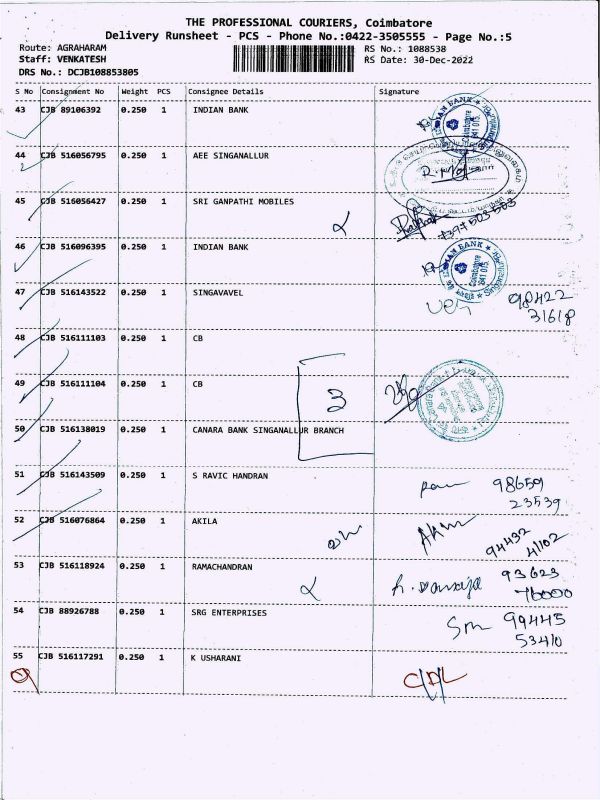 THE PROFESSIONAL COURIERS, Coimbatore
Delivery Runsheet - PCS - Phone No.:0422-3505555 - Page No.:5
Route: AGRAHARAM
Staff: VENKATESH
DRS No.: DCJB108853805
RS No.: 1088538
RS Date: 30-Dec-2022
S No Consignment No Weight PCS Consignee Details Signature
43 CJB 89106392 0.250 1 INDIAN BANK
INDIAN BANK Coimbatore 641 015
44 CJB 516056795 0.250 1 AEE SINGANALLUR
45 CJB 516056427 0.250 1 SRI GANPATHI MOBILES
46 CJB 516096395 0.250 1 INDIAN BANK
INDIAN BANK Coimbatore 641 015
47 CJB 516143522 0.250 1 SINGAVAVEL 98422
31618
48 CJB 516111103 0.250 1 CB
49 CJB 516111104 0.250 1 CB
3
50 CJB 516138019 0.250 1 CANARA BANK SINGANALLUR BRANCH
51 CJB 516143509 0.250 1 S RAVIC HANDRAN 98659
23539
52 CJB 516076864 0.250 1 AKILA 94432
41102
53 CJB 516118924 0.250 1 RAMACHANDRAN 93623
76000
54 CJB 88926788 0.250 1 SRG ENTERPRISES 99445
53410
55 CJB 516117291 0.250 1 K USHARANI